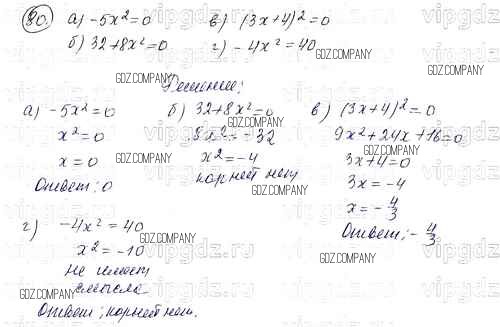 80. а) -5x²=0  в) (3x+4)²=0
б) 32+8x²=0  г) -4x²=40
Решение:
а) -5x²=0
x²=0
x=0
Ответ: 0
б) 32+8x²=0
8x²=-32
x²=-4
корней нет
в) (3x+4)²=0
9x²+24x+16=0
3x+4=0
3x=-4
x=-4/3
Ответ: -4/3
г) -4x²=40
x²=-10
не имеет
смысла
Ответ: корней нет.
GDZ.COMPANY
vipgdz.ru